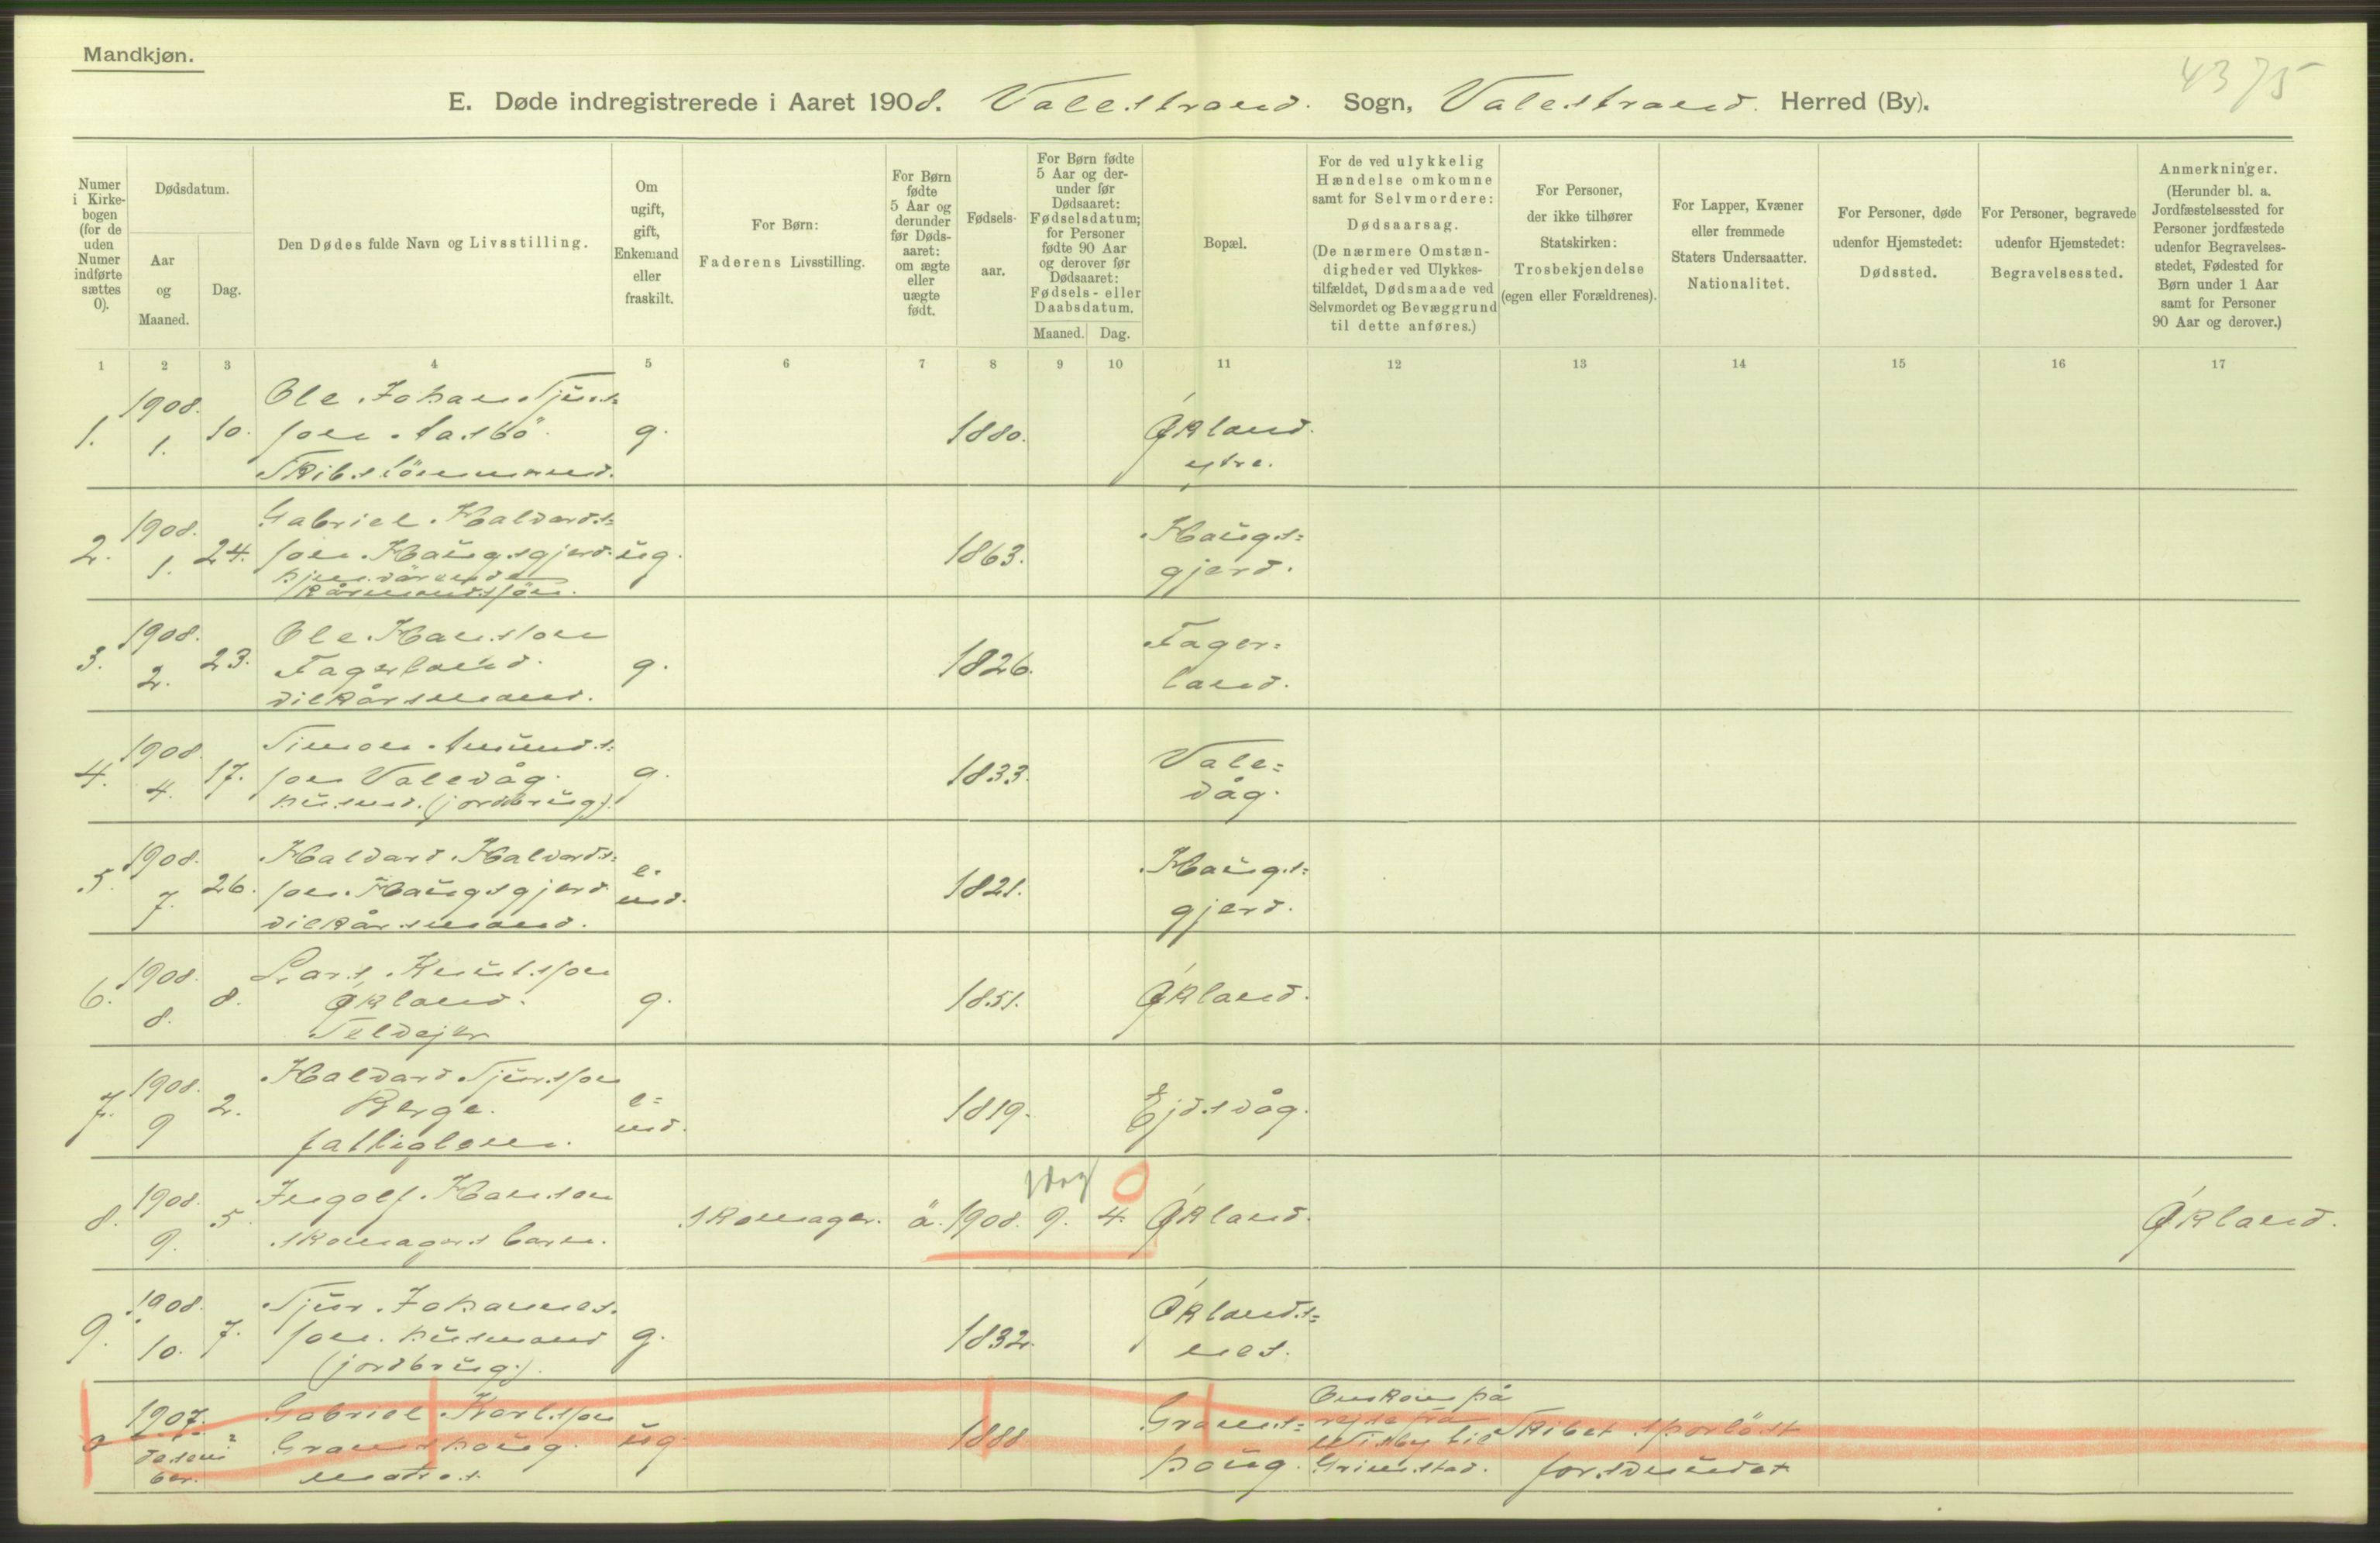 Mandkjøn.
4375
E. Døde indregistrerede i Aaret 1908. Valestrand. Sogn, Valestrand. Herred (By).
Numer i Kirkebogen (for de uden Numer indførte sættes 0).
Dødsdatum.
Aar og Maaned.
Dag.
Den Dødes fulde Navn og Livsstilling.
Om ugift, gift, Enkemand eller fraskilt.
For Børn: Faderens Livsstilling.
For Børn fødte 5 Aar og derunder før Dødsaaret: om ægte eller uægte født.
Fødselsaar.
For Børn fødte 5 Aar og derunder før Dødsaaret: Fødselsdatum; for Personer fødte 90 Aar og derover før Dødsaaret: Fødsels- eller Daabsdatum.
Maaned. Dag.
Bopæl.
For de ved ulykkelig Hændelse omkomne samt for Selvmordere: Dødsaarsag. (De nærmere Omstændigheder ved Ulykkestilfældet, Dødsmaade ved Selvmordet og Bevæggrund til dette anføres.)
For Personer, der ikke tilhører Statskirken: Trosbekjendelse (egen eller Forældrenes).
For Lapper, Kvæner eller fremmede Staters Undersaatter. Nationalitet.
For Personer, døde udenfor Hjemstedet: Dødssted.
For Personer, begravede udenfor Hjemstedet: Begravelsessted.
Anmerkninger. (Herunder bl. a. Jordfæstelsessted for Personer jordfæstede udenfor Begravelsesstedet, Fødested for Børn under 1 Aar samt for Personer 90 Aar og derover.)
1 2 3 4 5 6 7 8 9 10 11 12 13 14 15 16 17
1908. Ole Johan Tjers=
1. 1. 10. søn Aasbö. g. 1880. Økland.
Skibstömmermand. ytre.
1908. Gabriel Halvards= Haugs=
2. 1. 24. søn Haugsgjerd. ug. 1863. gjerd.
1908. Ole Hansson Fager=
3. 2. 23. Fagerland. g. 1826. land.
vilkårsmand.
1908. Simon Amunds= Vale=
4. 4. 17. søn Valevåg. g. 1833. våg.
husmd. (jordbrug).
1908. Halvard Halvards= e. Haugs=
5. 7. 26. søn Haugsgjerd md. 1821. gjerd.
vilkårsmand.
1908. Lars Knutsson
6. 8. 8. Økland. g. 1851. Økland.
Selvejer
1908. Halvard Tjersson e=
7. 9 2. Berge. md. 1819. Ejdsvåg.
fattiglem.
1908. Ingolf Hansson 1 dag 0
8. 9. 5. skomagers barn. skomager. ä. 1908. 9. 4. Økland. Økland.
1908. Tjer Johannes= Øklands=
9. 10. 7. søn. husmand g. 1832. nes.
(jordbrug).
1907. Gabriel Karlsson Gravns= Omkom på rejse fra Wisby til Grimstad. Skibet sporlöst forsvundet
0 desember. ? haug. ug. 1888 haug.
matros.